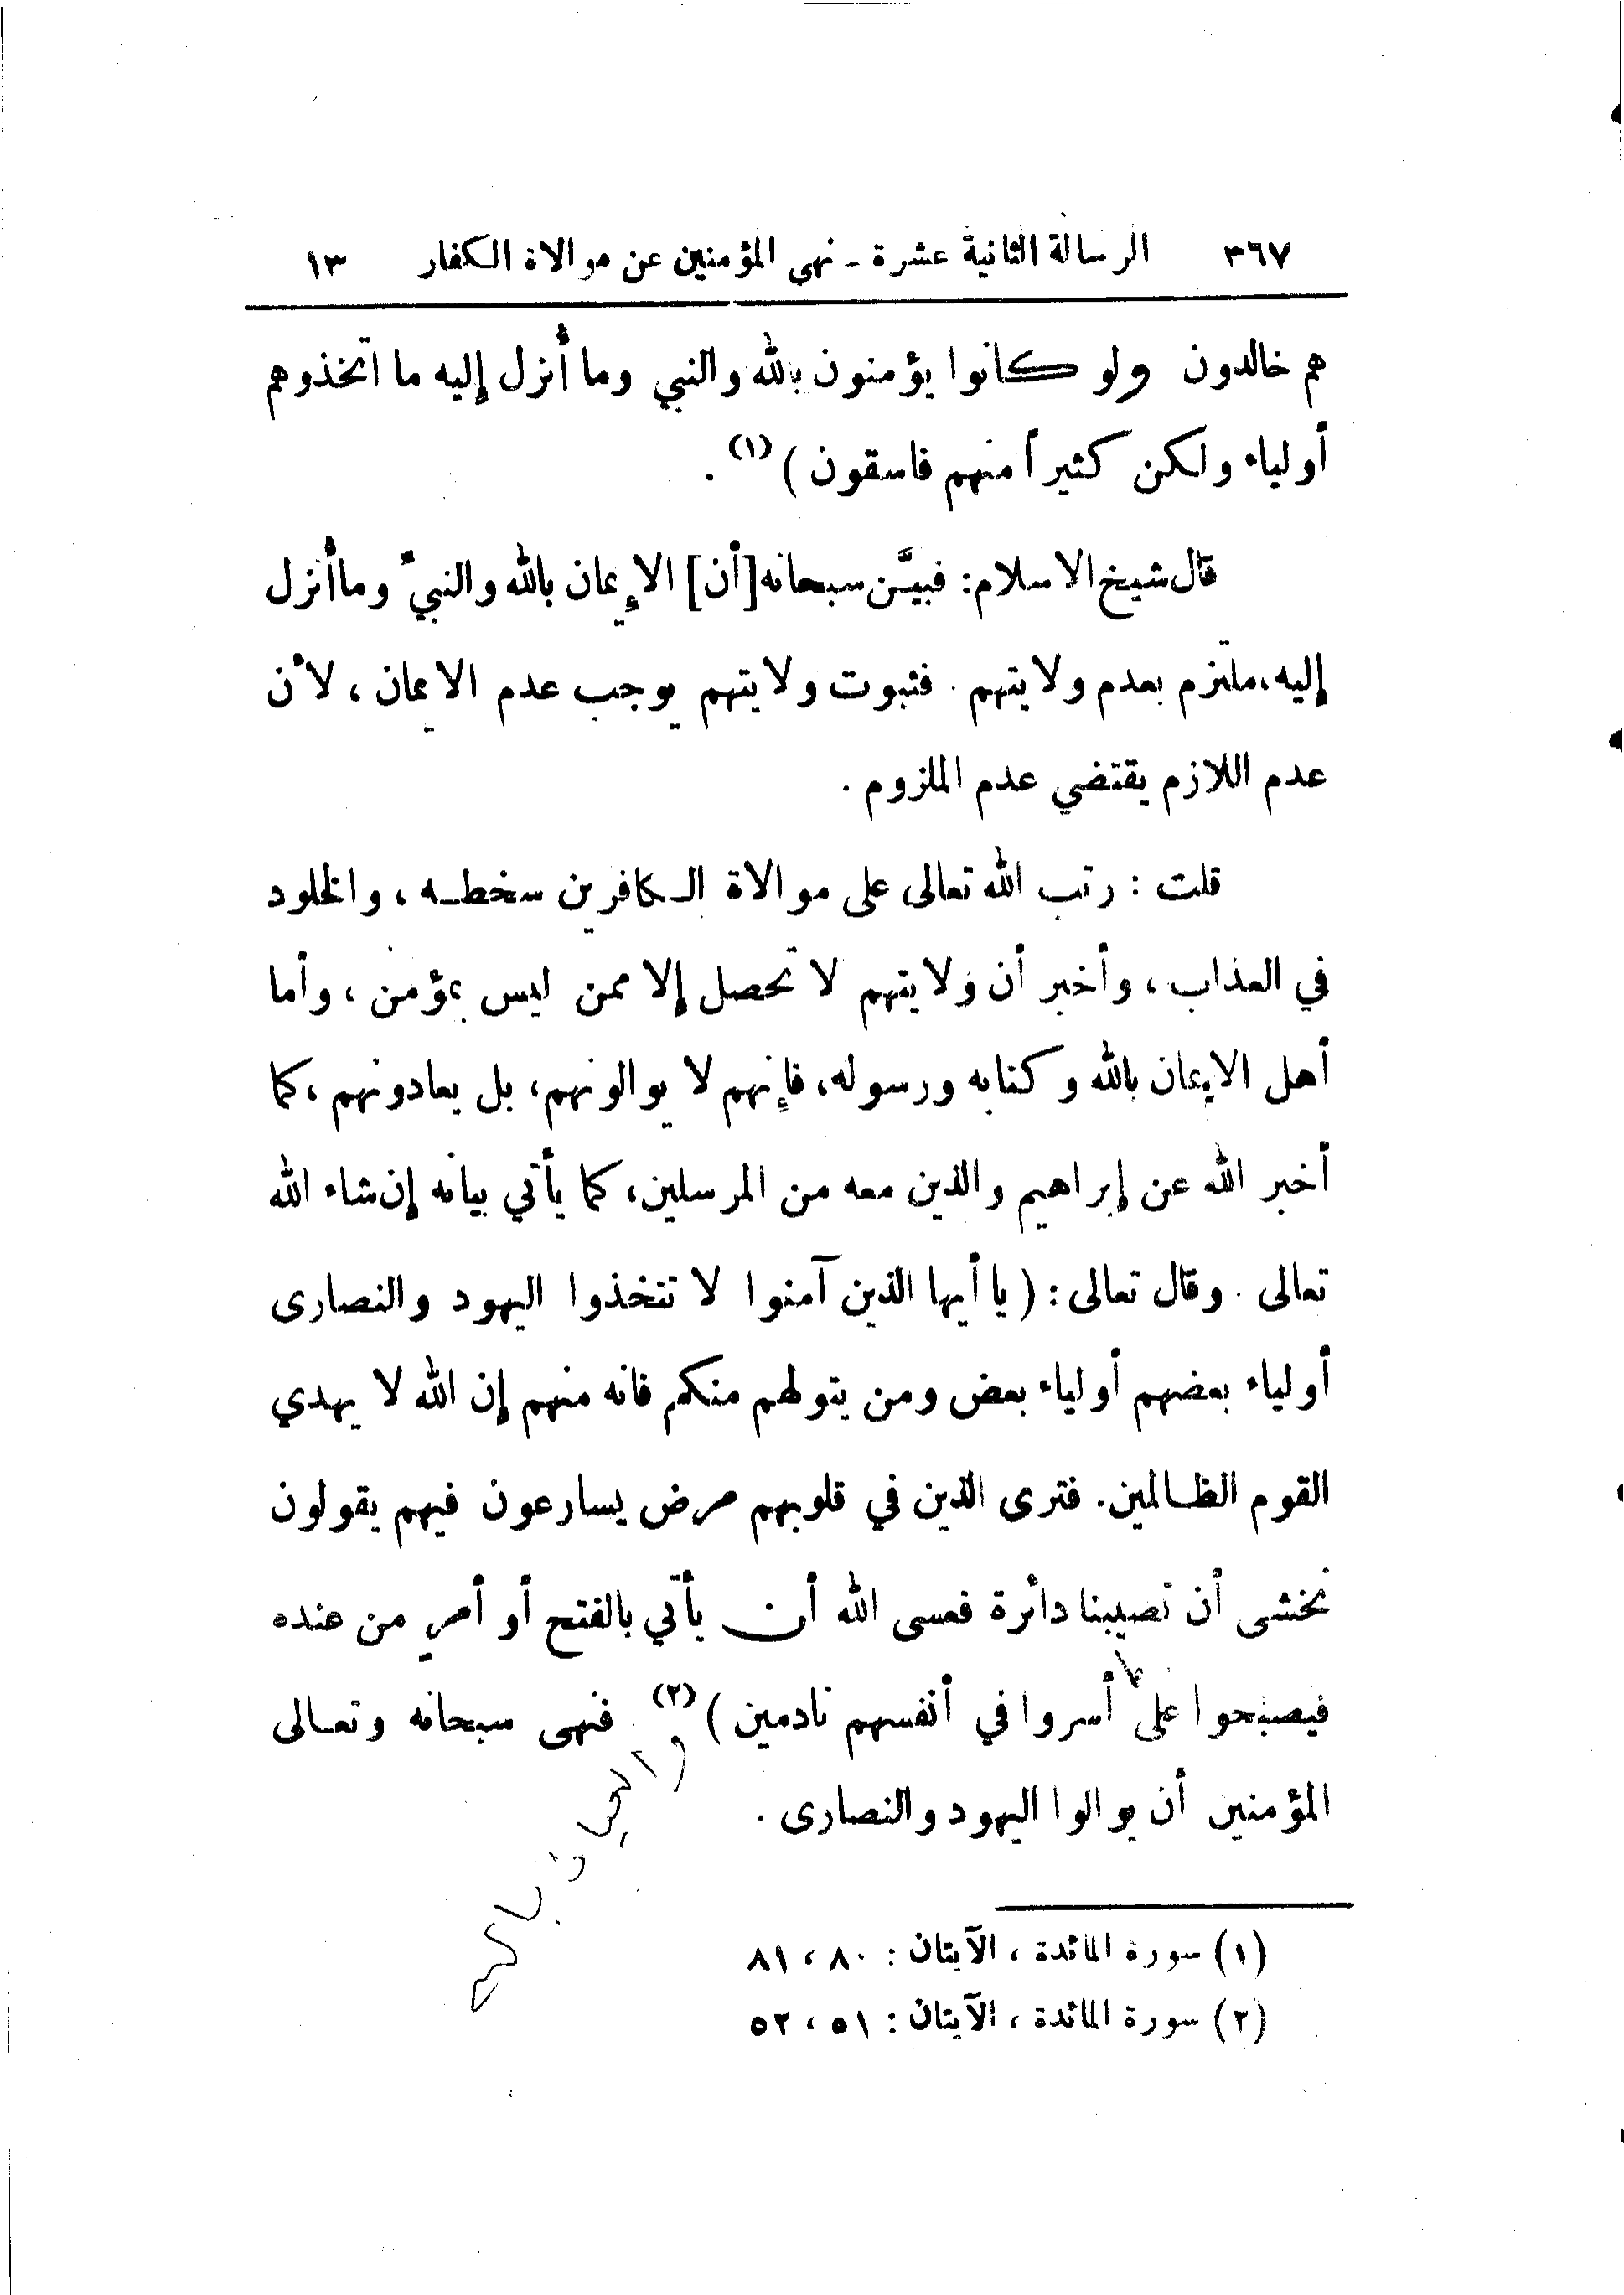 ٣٦٧ الرسالة الثانية عشرة ـ نهي المؤمنين عن موالاة الكفار ١٣
هم خالدون ولو كانوا يؤمنون بالله والنبي وما أُنزل إليه ما اتخذوهم
أولياء ولكن كثيراً منهم فاسقون ) (١) .
قال شيخ الاسلام: فبيَّن سبحانه [أن] الإيمان بالله والنبيِّ وما أُنزل
إليه، ملتزم بعدم ولايتهم . فثبوت ولايتهم يوجب عدم الايمان ، لأن
عدم اللازم يقتضي عدم الملزوم .
قلت : رتب الله تعالى على موالاة الكافرين سخطه ، والخلود
في العذاب ، وأخبر أن ولايتهم لا تحصل إلا ممن ليس بمؤمن ، وأما
أهل الايمان بالله وكتابه ورسوله، فإنهم لا يوالونهم، بل يعادونهم ، كما
أخبر الله عن إبراهيم والذين معه من المرسلين، كما يأتي بيانه إن شاء الله
تعالى . وقال تعالى : ( يا أيها الذين آمنوا لا تتخذوا اليهود والنصارى
أولياء بعضهم أولياء بعض ومن يتولهم منكم فانه منهم إن الله لا يهدي
القوم الظالمين . فترى الذين في قلوبهم مرض يسارعون فيهم يقولون
نخشى أن تصيبنا دائرة فعسى الله أن يأتي بالفتح أو أمرٍ من عنده
ما
فيصبحوا على أسروا في أنفسهم نادمين ) (٢) . فنهى سبحانه وتعالى
المؤمنين أن يوالوا اليهود والنصارى .
(١) سورة المائدة ، الآيتان : ٨٠ ، ٨١
(٢) سورة المائدة ، الآيتان : ٥١ ، ٥٢